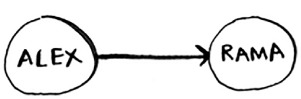 ALEX
RAMA